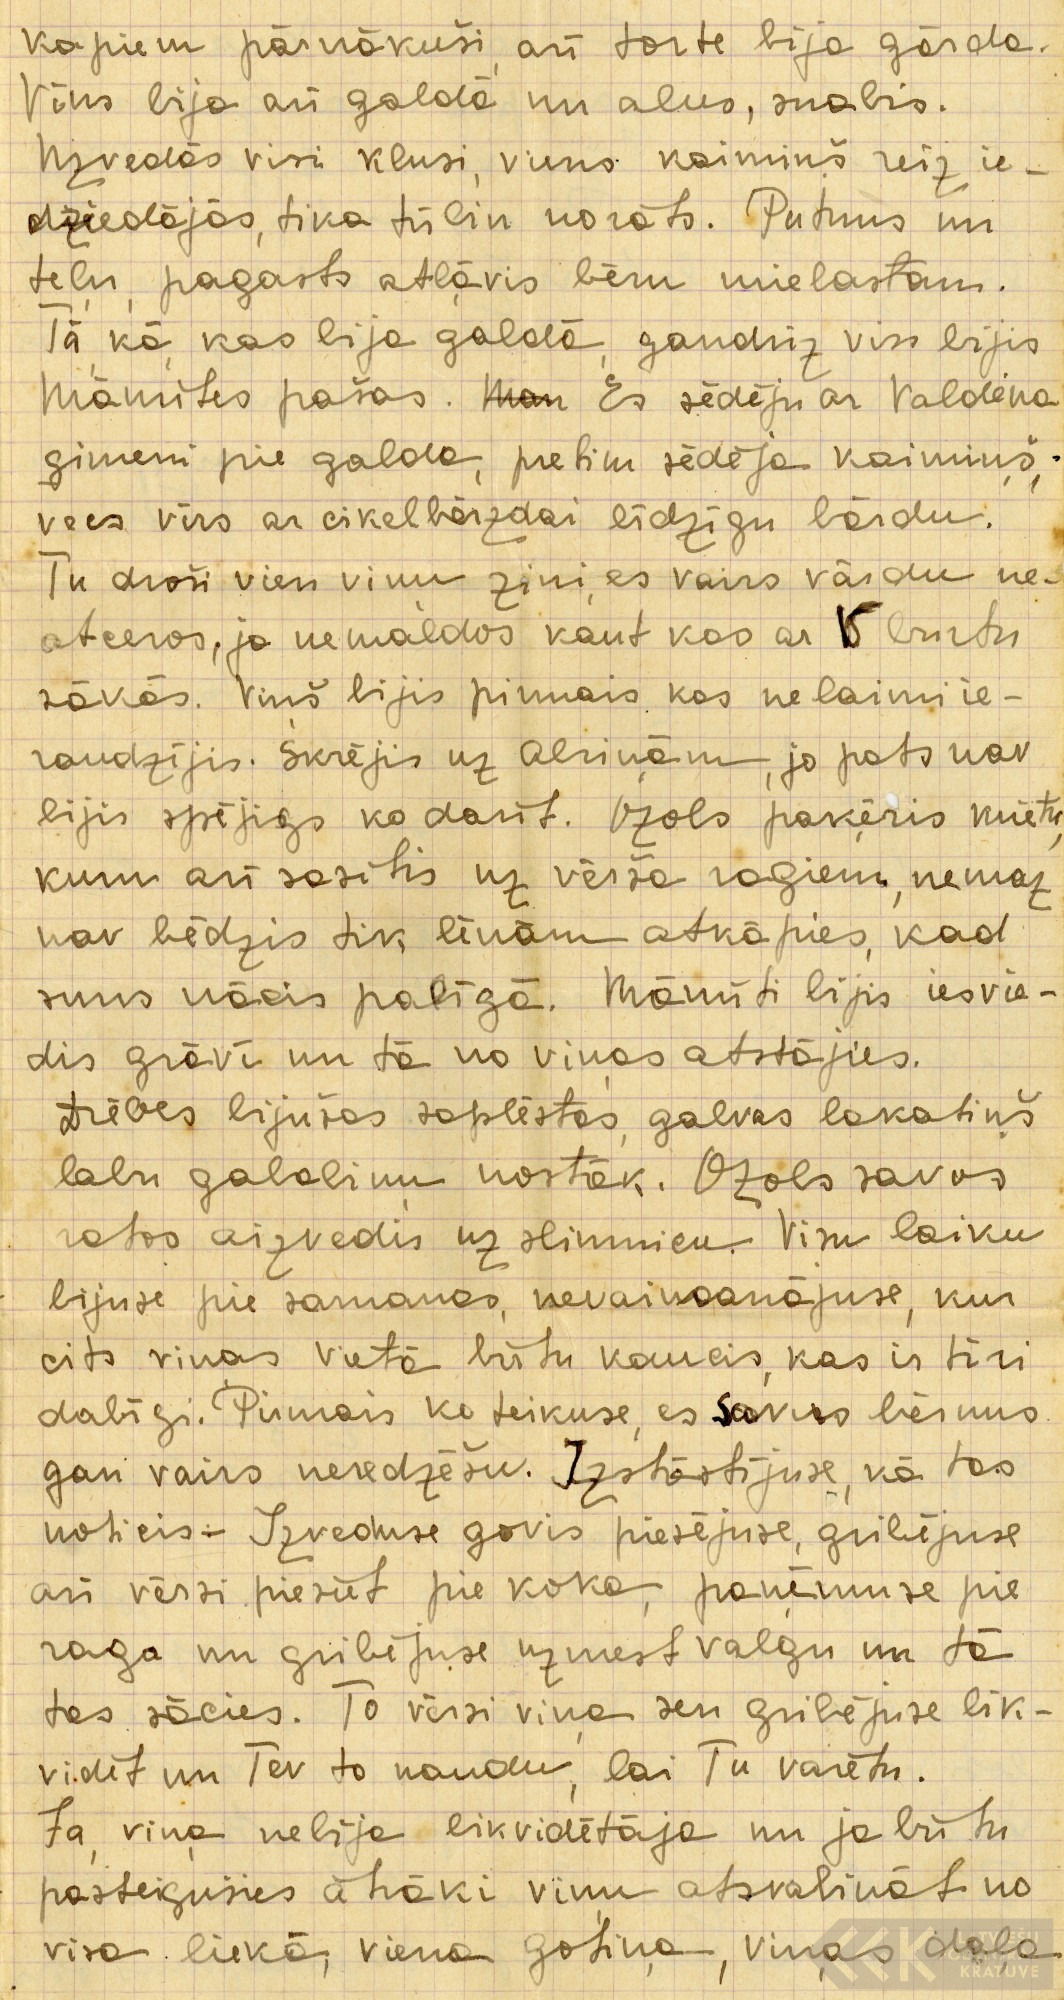 kapiem pārnākuši, arī torte bija gārda.
Vīns bija arī galdā un alus, snabis.
Uzvedās visi klusi, viens kaimiņš reiz ie-
dziedājās, tika tūlin norāts. Putnus un
teļu, pagasts atļāvis bēru mielastam.
Tā kā, kas bija galdā, gandrīz viss bijis
Māmītes pašas. Man Es sēdēju ar Valdiņa
ģimeni pie galda, pretim sēdēja kaimiņš,
vecs vīrs ar cikelbārzdai līdzīgu bārdu.
Tu droši vien viņu zini, es vairs vārdu ne-
atceros, ja nemaldos kaut kas ar V burtu
sākās. Viņš bijis pirmais kas nelaimi ie-
raudzījis. Skrējis uz Alsiņām, jo pats nav
bijis spējīgs ko darīt. Ozols paķēris mietu,
kuru arī sasitis uz vērša ragiem, nemaz
nav bēdzis tik lēnām atkāpies, kad
suns nācis palīgā. Māmīti bijis iesvie-
dis grāvī un tā no viņas atstājies.
Drēbes bijušas saplēstas, galvas lakatiņš
labu gabaliņu nostāk. Ozols savos
ratos aizvedis uz slimnicu. Visu laiku
bijuse pie samaņas, nevaimanājuse, kur
cits viņas vietā būtu kaucis, kas ir tīri
dabīgi. Pirmais ko teikuse, es savus bērnus
gan vairs neredzēšu. Izstāstījuse, kā tas
noticis - Izveduse govis piesējuse, gribējuse
arī vērsi piesiet pie koka, paņēmuse pie
raga un gribējuse uzmest valgu un tā
tas sācies. To vērsi viņa sen gribējuse lik-
vidēt un Tev to naudu, lai Tu varētu.
Ja, viņa nebija likvidētāja un ja būtu
pasteigušies ātrāki viņu atsvabināt no
visa liekā, viena gotiņa, viņas daļa